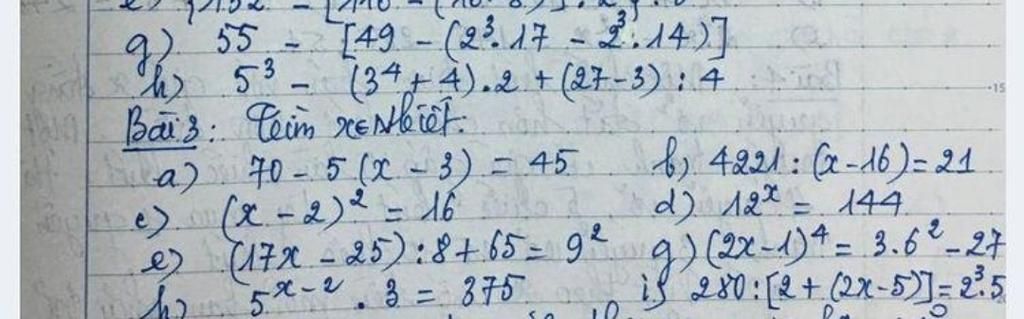 g) 55 - [49 - (2³.17 - 2³.14)]
h) 5³ - (3⁴ + 4).2 + (27-3) : 4
Bài 3: Tìm x∈N biết:
a) 70 - 5(x - 3) = 45 b) 4221 : (x-16) = 21
c) (x - 2)² = 16 d) 12ˣ = 144
e) (17x - 25) : 8 + 65 = 9² g) (2x-1)⁴ = 3.6² - 27
h) 5ˣ⁻² . 3 = 375 i) 280 : [2 + (2x-5)] = 2³.5